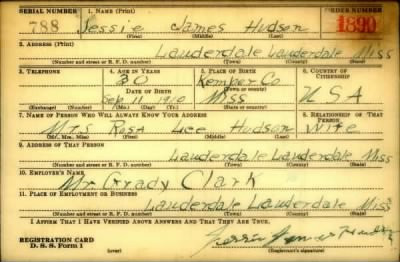 SERIAL NUMBER 1. NAME (Print) ORDER NUMBER
788 Jessie James Hudson 1890
(First) (Middle) (Last)
2. ADDRESS (Print)
Lauderdale Lauderdale Miss
(Number and street or R. F. D. number) (Town) (County) (State)
3. TELEPHONE 4. AGE IN YEARS 5. PLACE OF BIRTH 6. COUNTRY OF CITIZENSHIP
30 Kemper Co
DATE OF BIRTH (Town or county)
Sep 11 1910 Miss USA
(Exchange) (Number) (Mo.) (Day) (Yr.) (State or country)
7. NAME OF PERSON WHO WILL ALWAYS KNOW YOUR ADDRESS 8. RELATIONSHIP OF THAT PERSON
Mrs Rosa Lee Hudson Wife
(Mr., Mrs., Miss) (First) (Middle) (Last)
9. ADDRESS OF THAT PERSON
Lauderdale Lauderdale Miss
(Number and street or R. F. D. number) (Town) (County) (State)
10. EMPLOYER'S NAME
Mr Grady Clark
11. PLACE OF EMPLOYMENT OR BUSINESS
Lauderdale Lauderdale Miss
(Number and street or R. F. D. number) (Town) (County) (State)
I AFFIRM THAT I HAVE VERIFIED ABOVE ANSWERS AND THAT THEY ARE TRUE.
REGISTRATION CARD
D. S. S. Form 1 (over) Jessie James Hudson
(Registrant's signature)